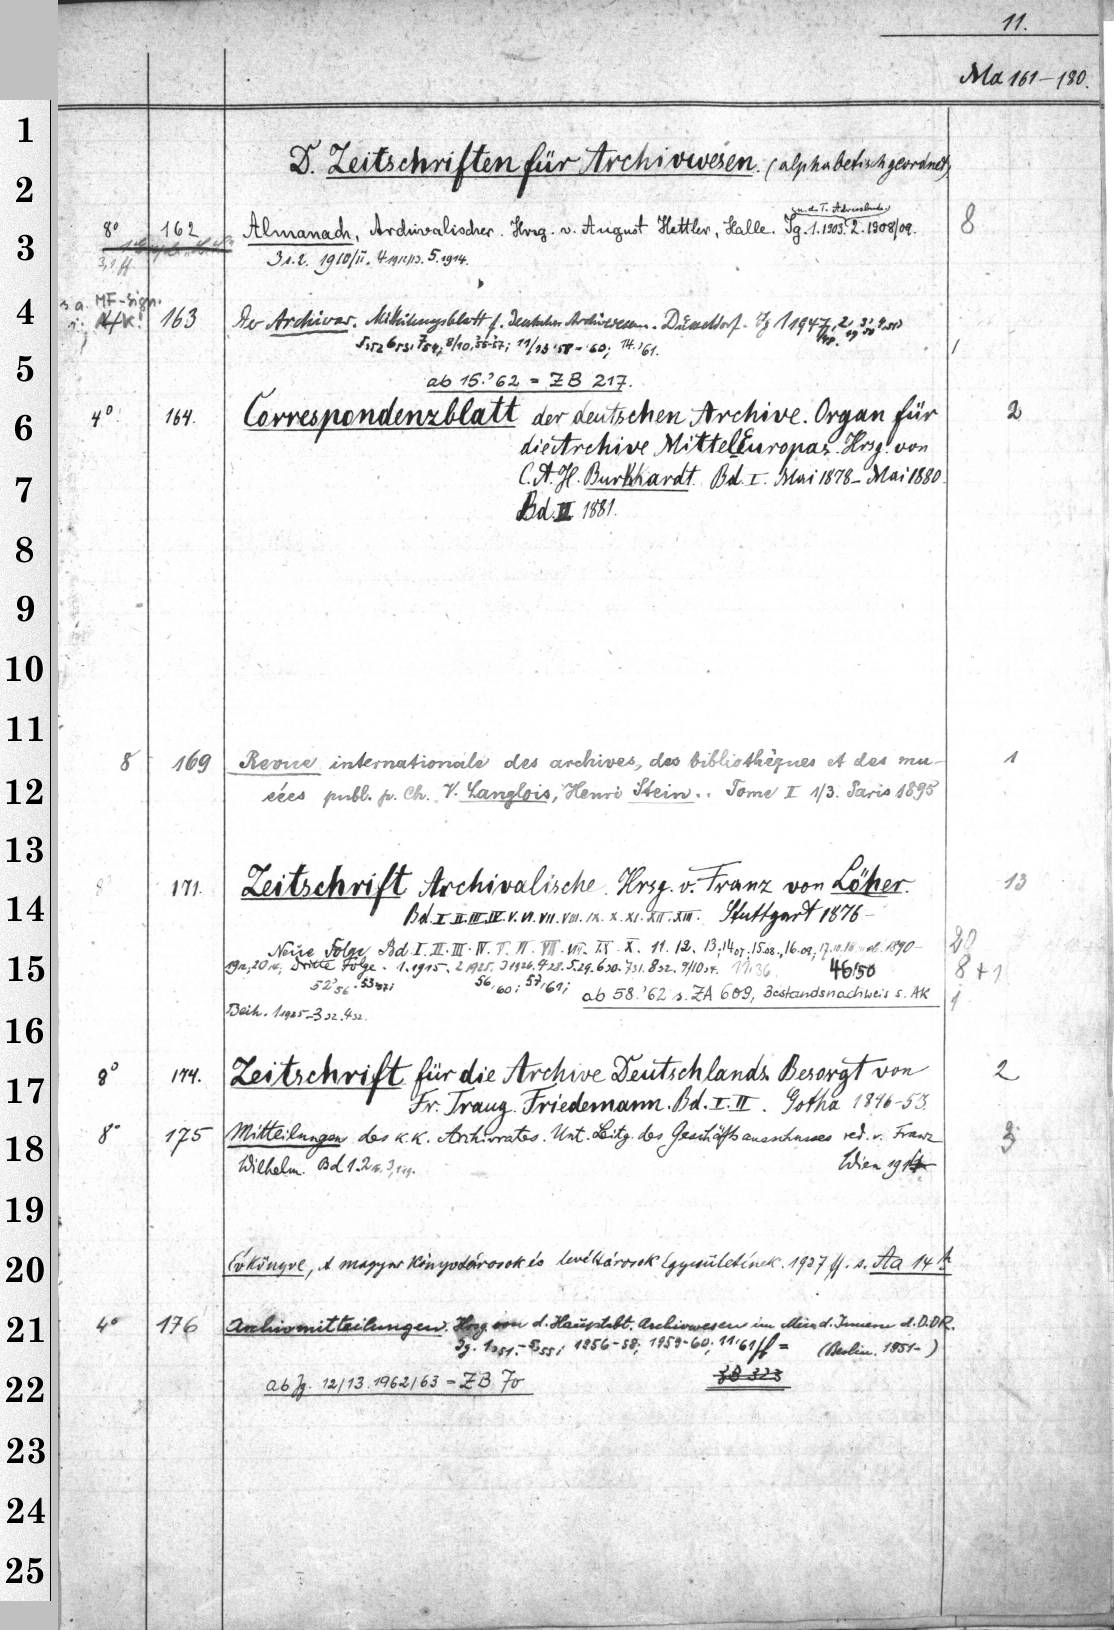 11.
Ma 161-180.
1
D. Zeitschriften für Archivwesen. (alphabetisch geordnet)
2
8° 162 Almanach, Archivalischer. Hrsg. v. August Hettler, Halle. Jg. 1. 1903. 2. 1908/09. 8
3
3 1. 2. 1910/11. 4 1912/13. 5. 1914.
s. a. MF-Sign.
4
163 Der Archivar. Mitteilungsblatt f. deutsches Archivwesen. Düsseldorf. Jg 1 1947, 2
11/13 '58-'60; 14.'61. 1
5
ab 15.'62 = ZB 217.
6
4° 164. Correspondenzblatt der deutschen Archive. Organ für 2
die Archive MittelEuropas. Hrsg. von
7
C. A. H. Burkhardt. Bd. I. Mai 1878 - Mai 1880.
Bd. II 1881.
8
9
10
11
8 169 Revue internationale des archives, des bibliothèques et des mu- 1
12
sées publ. p. Ch. V. Langlois, Henri Stein.. Tome I 1/3. Paris 1895
13
8° 171. Zeitschrift Archivalische. Hrsg. v. Franz von Löher. 13
14
Bd. I. II. III. IV. V. VI. VII. VIII. IX. X. XI. XII. XIII. Stuttgart 1876-
Neue Folge Bd. I. II. III. IV. V. VI. VII. VIII. IX. X. 11. 12. 13, 1890- 20
15
Dritte Folge. 1. 1915. 2 1925. 3 1926. 46.'50 8+1
ab 58.'62 s. ZA 609, Bestandsnachweis s. AK 1
Beih. 1 1925-3 32. 4 32.
16
8° 174. Zeitschrift für die Archive Deutschlands. Besorgt von 2
17
Fr. Traug. Friedemann. Bd. I-II. Gotha 1846-53.
8° 175 Mitteilungen des k.k. Archivrates. Unt. Leitg. des Geschäftsausschusses red. v. Franz 3
18
Wilhelm. Bd 1. 2 Wien 191
19
20
Évkönyve, A magyar könyvtárosok és levéltárosok Egyesületének. 1937 ff. s. Aa 14
21
4° 176 Archivmitteilungen. Hrsg. von d. Hauptabt. Archivwesen im Min. d. Innern d. DDR.
Jg. 1 1951.-5 55; 1956-58; 1959-60; 11'61 ff = (Berlin. 1951- )
22
ab Jg. 12/13. 1962/63 = ZB 70 ZB 323
23
24
25